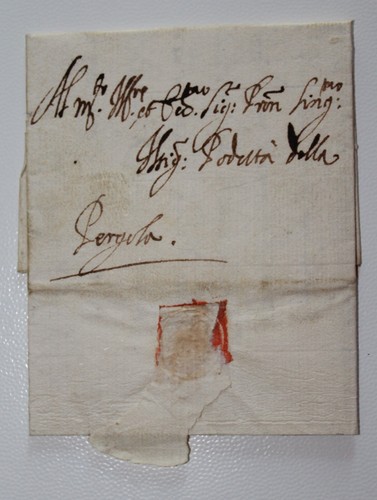 Al m.to Ill.re et Ecc.mo Sig.r Pron Sing.mo
Il Sig.r Podestà della
Pergola.